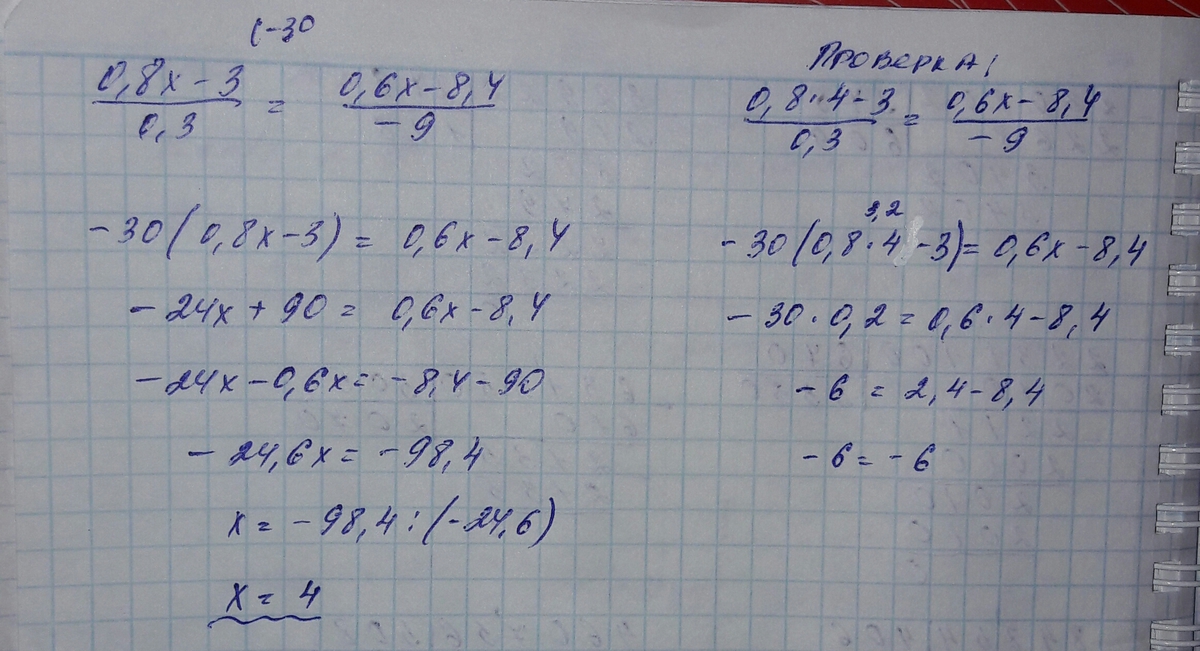 (-30
0,8x - 3 / 0,3 = 0,6x - 8,4 / -9
-30(0,8x-3) = 0,6x-8,4
-24x + 90 = 0,6x-8,4
-24x-0,6x = -8,4-90
-24,6x = -98,4
x = -98,4 : (-24,6)
x = 4
Проверка!
0,8·4-3 / 0,3 = 0,6x-8,4 / -9
3,2
-30(0,8·4-3) = 0,6x-8,4
-30·0,2 = 0,6·4-8,4
-6 = 2,4-8,4
-6 = -6